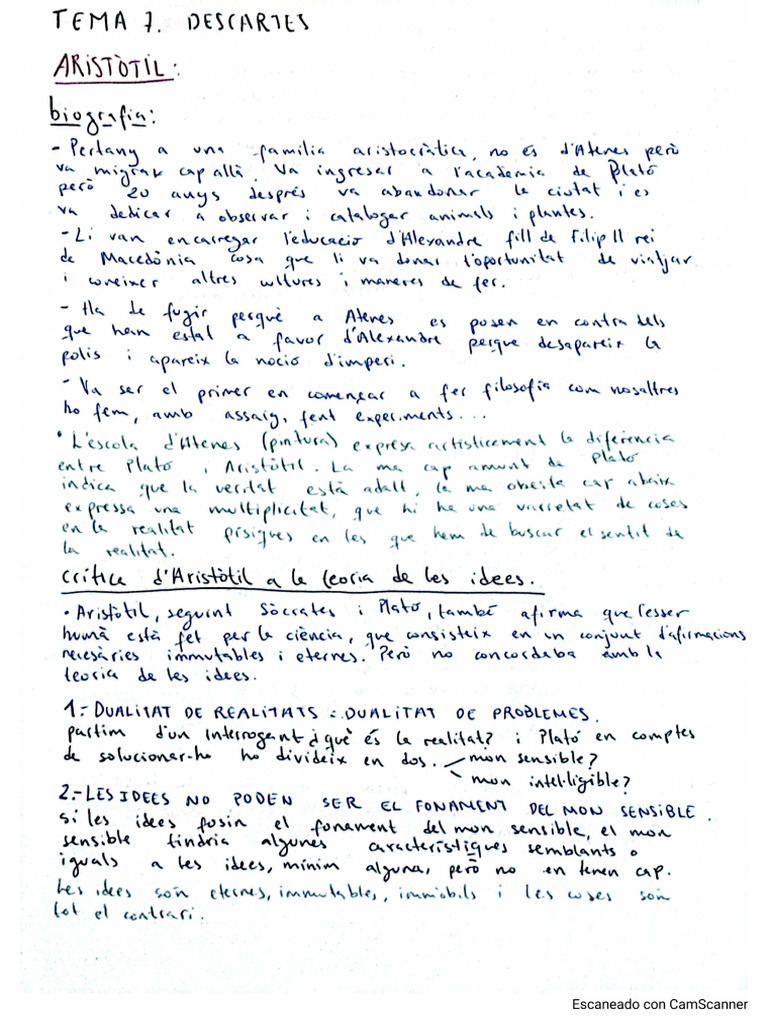 TEMA 7. DESCARTES
ARISTÒTIL:
biografia:
- Pertany a una família aristocràtica, no és d'Atenes però
va migrar cap allà. Va ingresar a l'acadèmia de Plató
però 20 anys després va abandonar la ciutat i es
va dedicar a observar i catalogar animals i plantes.
- Li van encarregar l'educació d'Alexandre fill de Filip II rei
de Macedònia cosa que li va donar l'oportunitat de viatjar
i coneixer altres cultures i maneres de fer.
- Ha de fugir perquè a Atenes es posen en contra dels
que han estat a favor d'Alexandre perque desapareix la
polis i apareix la noció d'imperi.
- Va ser el primer en començar a fer filosofia com nosaltres
ho fem, amb assaig, fent experiments...
• L'escola d'Atenes (pintura) expresa artísticament la diferència
entre Plató i Aristòtil. La ma cap amunt de Plató
indica que la veritat està adalt, la ma oberta cap abaix
expressa una multiplicitat, que hi ha una varietat de coses
en la realitat físiques en les que hem de buscar el sentit de
la realitat.
crítica d'Aristòtil a la teoria de les idees.
• Aristòtil, seguint Sòcrates i Plató, també afirma que l'esser
humà està fet per la ciència, que consisteix en un conjunt d'afirmacions
necesàries immutables i eternes. Però no concordaba amb la
teoria de les idees.
1.- DUALITAT DE REALITATS = DUALITAT DE PROBLEMES.
partim d'un interrogant ¿què és la realitat? i Plató en comptes
de solucionar-ho ho divideix en dos. mon sensible?
mon intel·ligible?
2.- LES IDEES NO PODEN SER EL FONAMENT DEL MON SENSIBLE.
si les idees fosin el fonament del mon sensible, el mon
sensible tindria algunes característiques semblants o
iguals a les idees, mínim alguna, però no en tenen cap.
Les idees són eternes, immutables, immòbils i les coses són
tot el contrari.
Escaneado con CamScanner